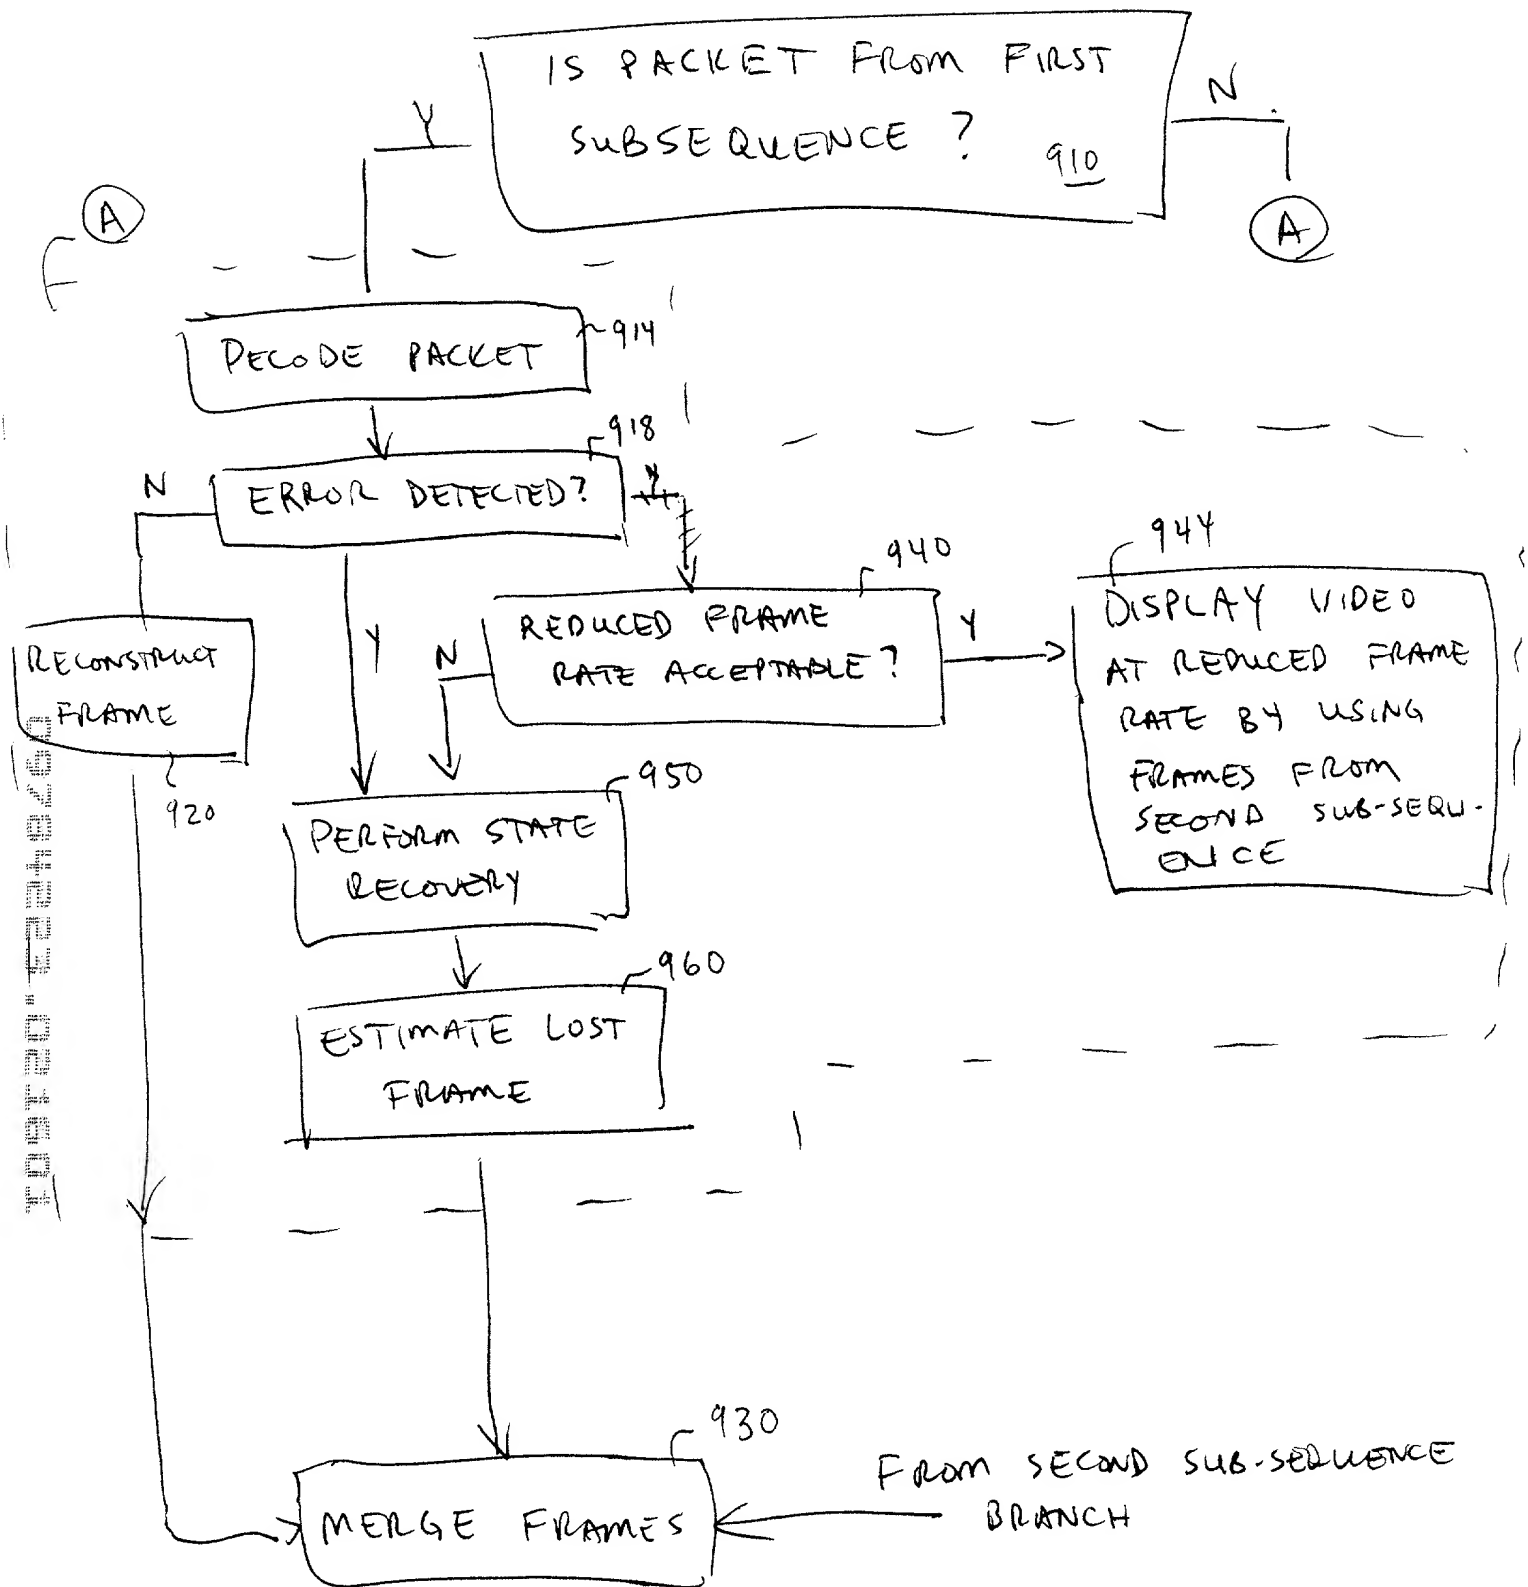 IS PACKET FROM FIRST
SUBSEQUENCE ?
910
Y
N
A
A
DECODE PACKET
914
918
N
ERROR DETECTED?
Y
940
944
REDUCED FRAME
RATE ACCEPTABLE?
Y
N
Y
DISPLAY VIDEO
AT REDUCED FRAME
RATE BY USING
FRAMES FROM
SECOND SUB-SEQU-
ENCE
RECONSTRUCT
FRAME
920
950
PERFORM STATE
RECOVERY
960
ESTIMATE LOST
FRAME
930
MERGE FRAMES
FROM SECOND SUB-SEQUENCE
BRANCH